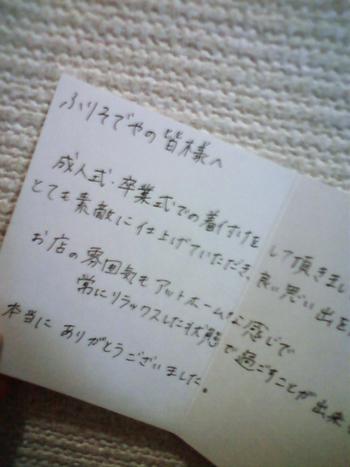 ふりそでやの皆様へ
成人式・卒業式での着付けをして頂きまし
とても素敵に仕上げていただき、良い思い出を
お店の雰囲気もアットホームな感じで
常にリラックスした状態で過ごすことが出来
本当にありがとうございました。